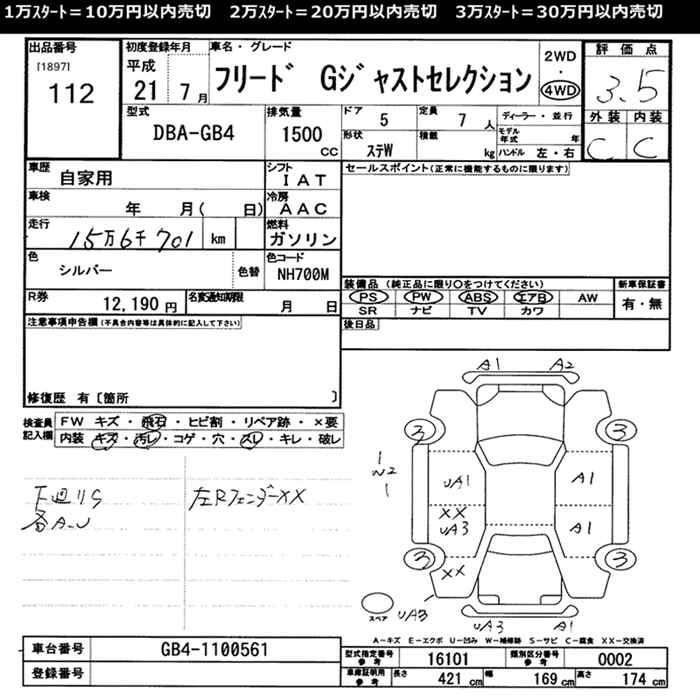 1万ｽﾀｰﾄ＝10万円以内売切　2万ｽﾀｰﾄ＝20万円以内売切　3万ｽﾀｰﾄ＝30万円以内売切
出品番号
[1897]
112
初度登録年月
平成
21 7月
車名・グレード
フリード Gジャストセレクション
2WD
・
4WD
評価点
3.5
外装 内装
C C
型式
DBA-GB4
排気量
1500
cc
ドア
5
定員
7人
形状
ステW
積載
kg
ディーラー・並行
モデル年式 年
ハンドル 左・右
車歴
自家用
シフト
IAT
車検
年 月( 日)
冷房
AAC
走行
15万6千701 km
燃料
ガソリン
色
シルバー
色替
色コード
NH700M
R券
12,190円
名変通知期限
月 日
セールスポイント(正常に機能するものに限ります)
装備品(純正品に限り○をつけてください)
PS PW ABS エアB AW
SR ナビ TV カワ
新車保証書
有・無
後日品
注意事項申告欄(不具合内容等は具体的に記入して下さい)
修復歴 有〔箇所 〕
検査員記入欄
FW キズ・飛石・ヒビ割・リペア跡・×要
内装 キズ・汚レ・コゲ・穴・スレ・キレ・破レ
下廻リS
各A-U
左Rフェンダー××
A1 A2
3 3
W2
UA1 A1
XX
UA3 A1
3 3
XX
スペア
UA3
UA3 A1
A-キズ E-エクボ U-凹み W-補修跡 S-サビ C-腐食 XX-交換済
車台番号
GB4-1100561
登録番号
型式指定番号 参考
16101
類別区分番号 参考
0002
車庫証明用 参考
長さ 421cm 幅 169cm 高さ 174cm